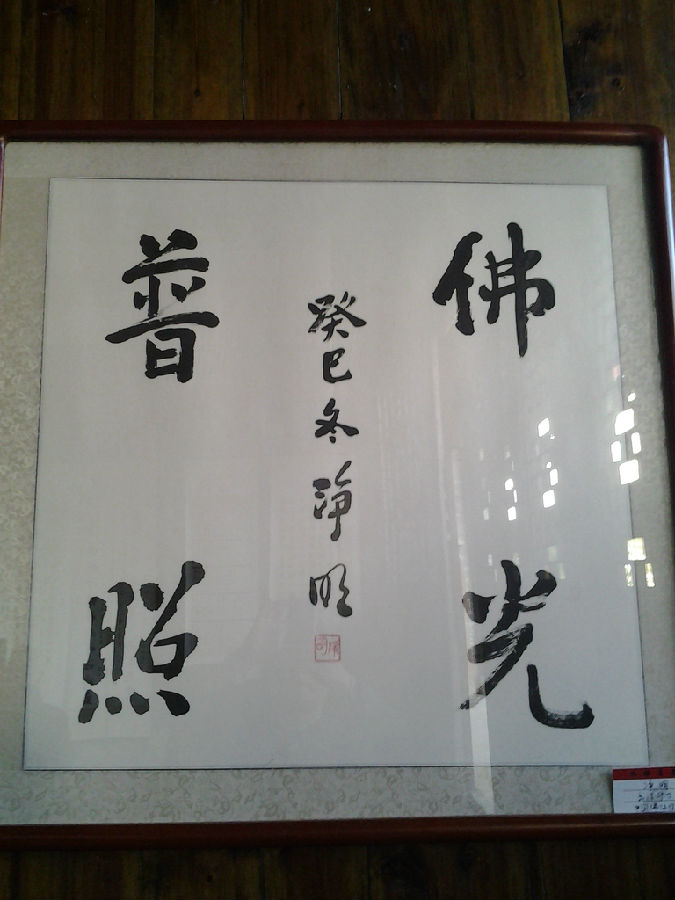 佛光
癸巳冬 淨明
普照